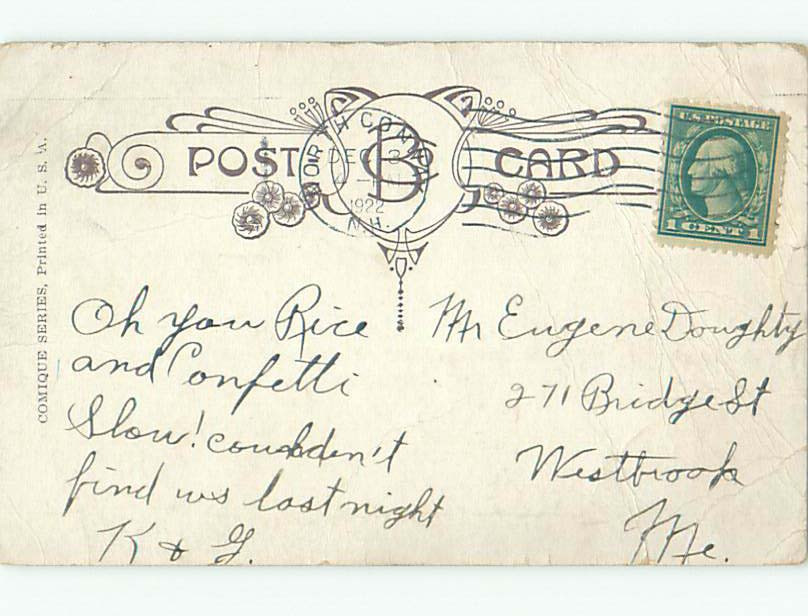 POST CARD
BC
NORTH CONWAY
DEC
1922
N.H.
U.S. POSTAGE
1 CENT 1
COMIQUE SERIES, Printed in U. S. A.
Oh you Rice
and Confetti
Slow! couldn't
find us last night
K & G.
Mr Eugene Doughty
271 Bridge St
Westbrook
Me.